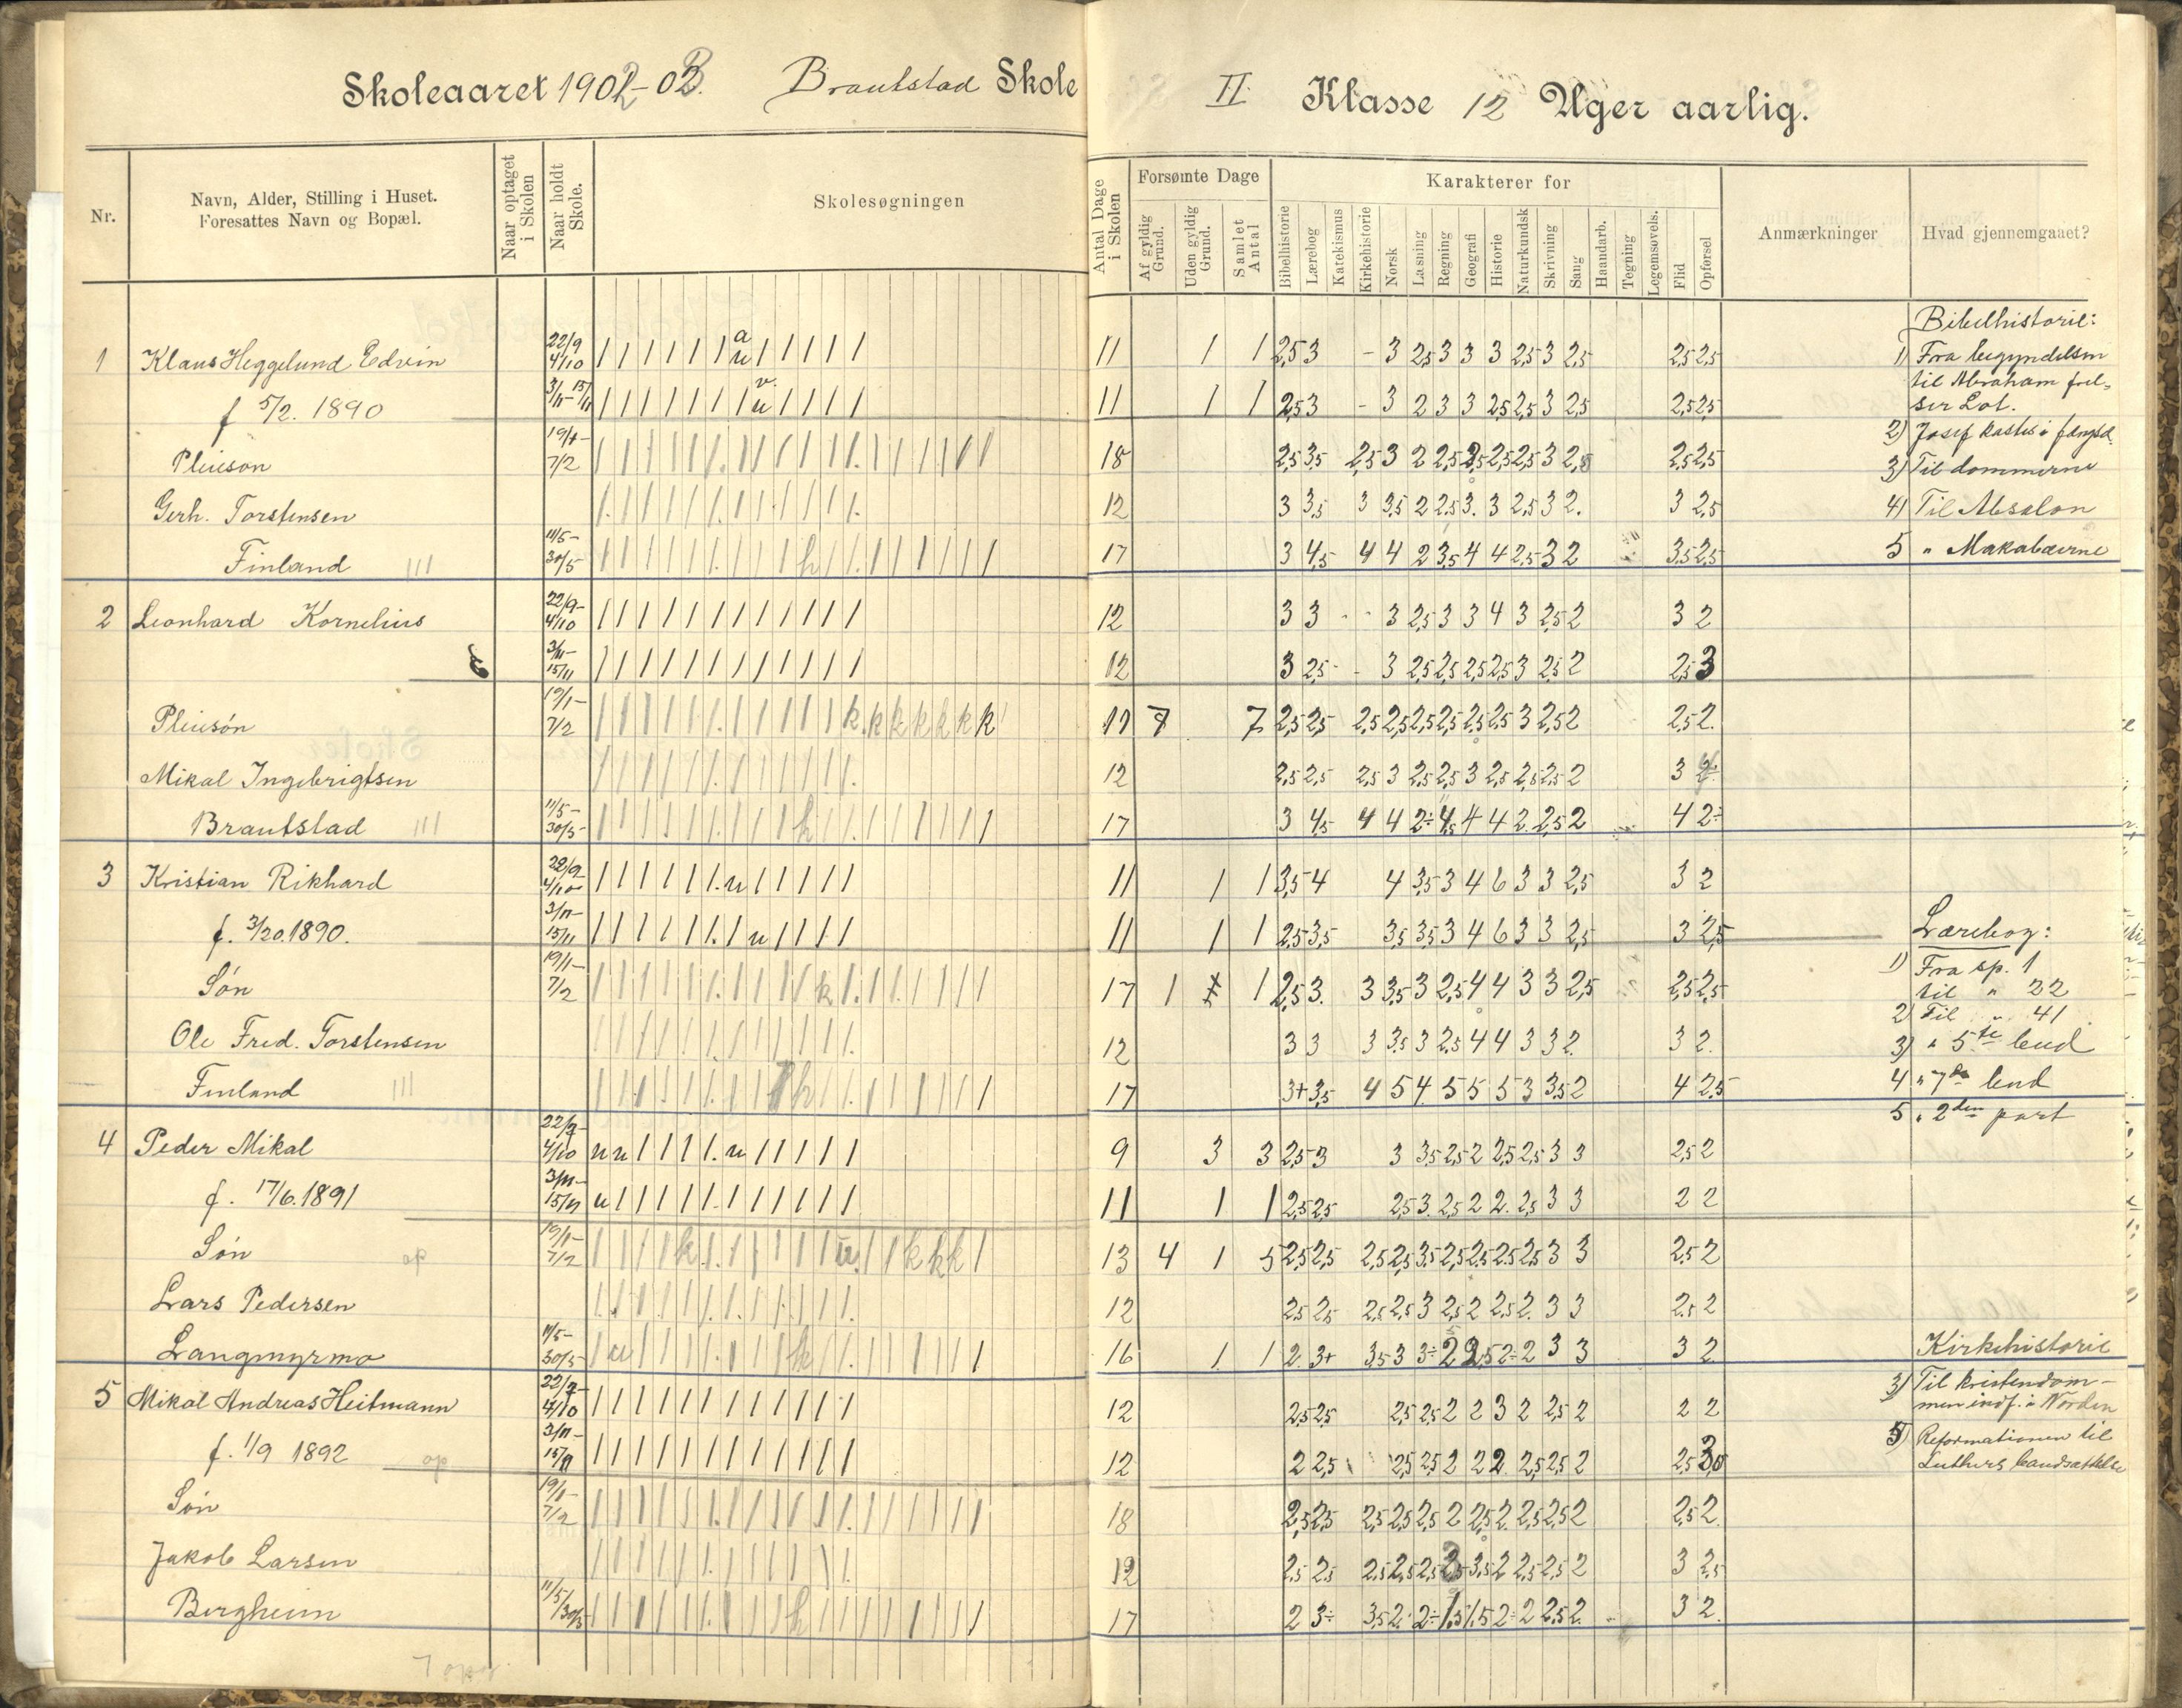 Skoleaaret 1902-03. Brautstad Skole
II Klasse 12 Uger aarlig.
Nr.
Navn, Alder, Stilling i Huset.
Foresattes Navn og Bopæl.
Naar optaget
i Skolen
Naar holdt
Skole.
Skolesøgningen
Antal Dage
i Skolen
Forsømte Dage
Af gyldig
Grund.
Uden gyldig
Grund.
Samlet
Antal
Karakterer for
Bibelhistorie
Lærebog
Katekismus
Kirkehistorie
Norsk
Læsning
Regning
Geografi
Historie
Naturkundsk
Skrivning
Sang
Haandarb.
Tegning
Legemsøvels.
Flid
Opførsel
Anmærkninger
Hvad gjennemgaaet?
1 Klaus Heggelund Edvin 22/9 4/10 11 1 1 2,5 3 - 3 2,5 3 3 3 2,5 3 2,5 2,5 2,5
f 5/2. 1890 3/11-15/11 11 1 1 2,5 3 - 3 2 3 3 2,5 2,5 3 2,5 2,5 2,5
Pleiesøn 19/1- 7/2 18 2,5 3,5 2,5 3 2 2,5 2,5 2,5 2,5 3 2,5 2,5 2,5
Gerh. Torstensen 12 3 3,5 3 3,5 2 2,5 3. 3 2,5 3 2. 3 2,5
Finland 11/5- 30/5 17 3 4,5 4 4 2 3,5 4 4 2,5 3 2 3,5 2,5
2 Leonhard Kornelius 22/9- 4/10 12 3 3 - - 3 2,5 3 3 4 3 2,5 2 3 2
3/11- 15/11 12 3 2,5 - - 3 2,5 2,5 2,5 2,5 3 2,5 2 2,5 3
Pleiesøn 19/1- 7/2 k k k k k k k 11 7 7 2,5 2,5 2,5 2,5 2,5 2,5 2,5 2,5 3 2,5 2 2,5 2.
Mikal Ingebrigtsen 12 2,5 2,5 2,5 3 2,5 2,5 3 2,5 2,5 2,5 2 3
Brautstad 11/5- 30/5- 17 3 4,5 4 4 2÷ 4,5 4 4 2 2,5 2 4 2÷
3 Kristian Rikhard 22/9- 4/10 11 1 1 3,5 4 4 3,5 3 4 6 3 3 2,5 3 2
f. 3/20.1890. 3/11- 15/11 11 1 1 2,5 3,5 3,5 3,5 3 4 6 3 3 2,5 3 2,5
Søn 19/1- 7/2 17 1 1 2,5 3. 3 3,5 3 2,5 4 4 3 3 2,5 2,5 2,5
Ole Fred. Torstensen 12 3 3 3 3,5 3 2,5 4 4 3 3 2. 3 2.
Finland 17 3+ 3,5 4 5 4 5 5 5 3 3,5 2 4 2,5
4 Peder Mikal 22/9- 4/10 9 3 3 2,5 3 3 3,5 2,5 2 2,5 2,5 3 3 2,5 2
f. 17/6.1891 3/11- 15/11 11 1 1 2,5 2,5 2,5 3 2,5 2 2. 2,5 3 3 2 2
Søn 19/1- 7/2 13 4 1 5 2,5 2,5 2,5 2,5 3,5 2,5 2,5 2,5 2,5 3 3 2,5 2
Lars Pedersen 12 2,5 2,5 2,5 2,5 3 2,5 2 2,5 2. 3 3 2,5 2
Langmyrmo 11/5- 30/5- 16 1 1 2. 3+ 3,5 3 3÷ 2 2,5 2÷ 2 3 3 3 2
5 Mikal Andreas Heitmann 22/9- 4/10 12 2,5 2,5 2,5 2,5 2 2 3 2 2,5 2 2 2
f. 1/9 1892 op 3/11- 15/11 12 2 2,5 2,5 2,5 2 2 2 2,5 2,5 2 2,5
Søn 19/1- 7/2 18 2,5 2,5 2,5 2,5 2,5 2 2,5 2. 2,5 2,5 2 2,5 2.
Jakob Larsen 12 2,5 2,5 2,5 2,5 2,5 3,5 2 2,5 2,5 2 3 2,5
Bergheim 11/5 30/5- 17 2 3÷ 3,5 2. 2÷ 1,5 1,5 2÷ 2 2,5 2. 3 2.
Bibelhistorie:
1) Fra begyndelsen
til Abraham frel-
ser Lot.
2) Josef kastes i fængsel.
3) Til dommerne
4) Til Absalon
5 " Makabæerne
Lærebog:
1) Fra sp. 1
til " 22
2) Til " 41
3) " 5te bud
4 " 7de bud
5 " 2den part
Kirkehistorie
3) Til kristendom-
men indf. i Norden
5) Reformationen til
Luthers bandsættelse